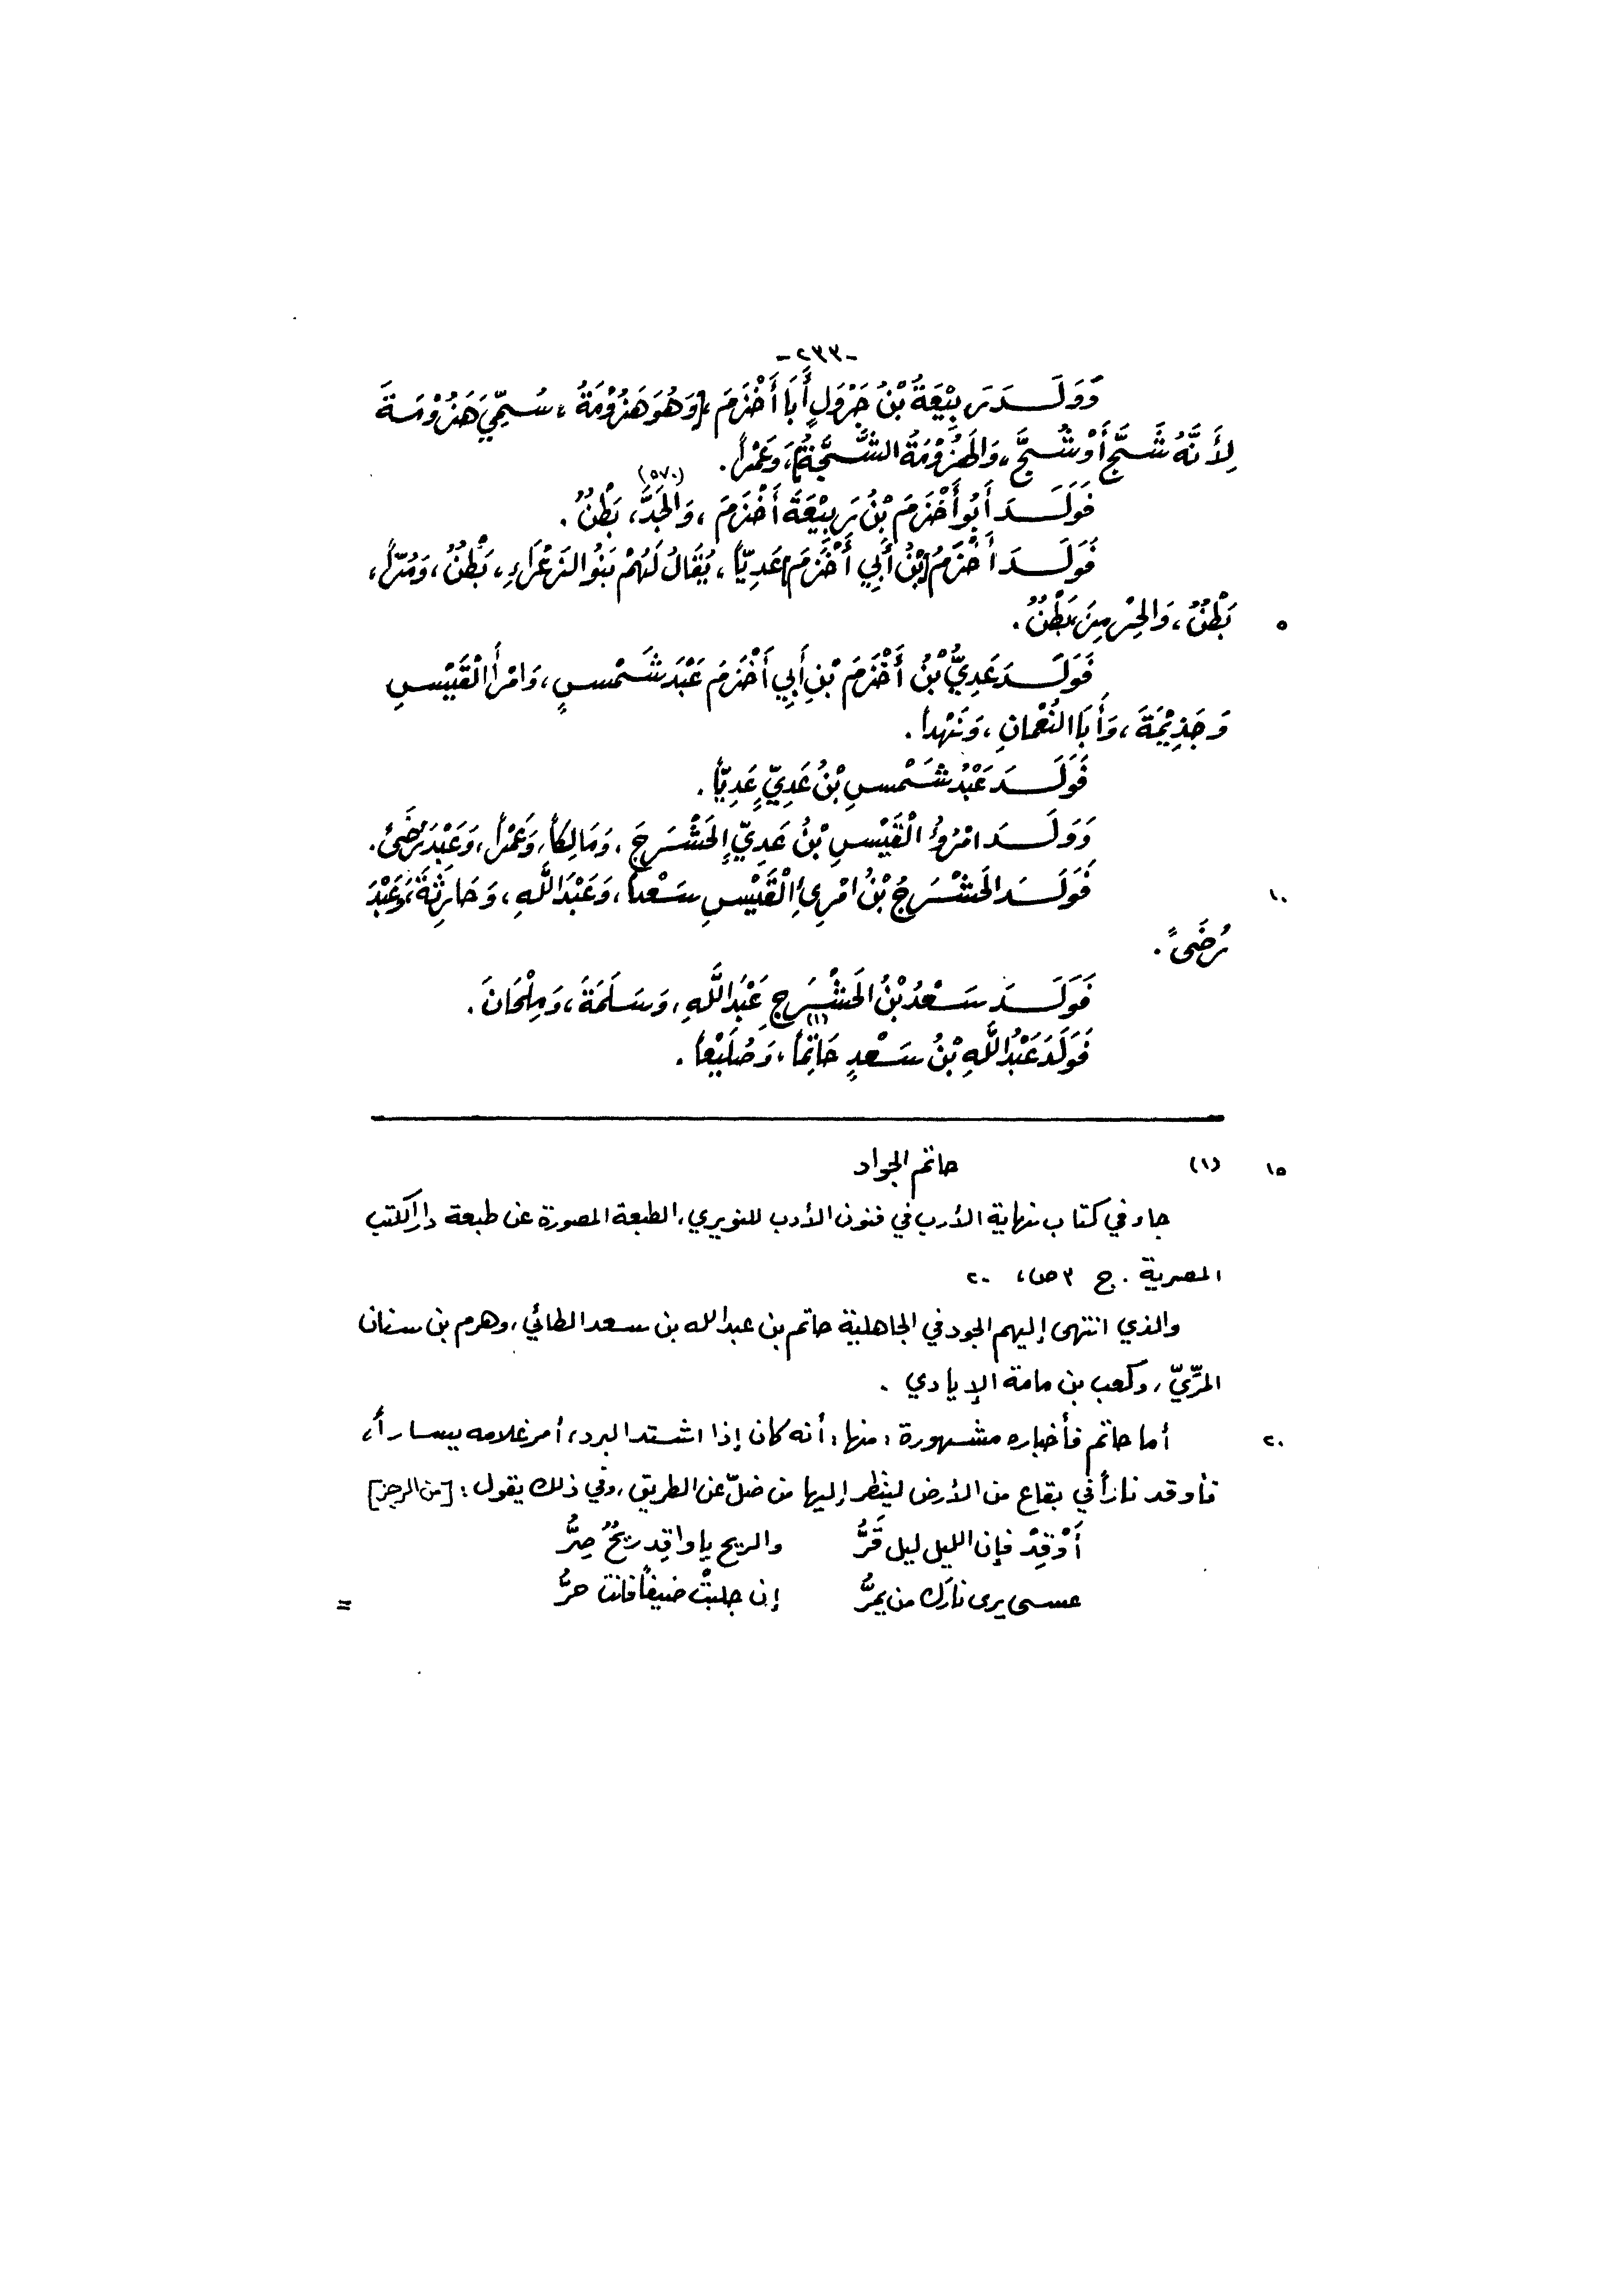 -٢٣٣-
وَوَلَـدَ رَبِيْعَةُ بْنُ جَرْوَلٍ أَبَا أَخْزَمَ، [وَهُوَ هَزُوْمَةُ، سُمِّيَ هَزُوْمَةَ
لِأَنَّهُ شَجَّ أَوْ شُجَّ، وَالهَزُوْمَةُ الشَّجَّةُ]، وَعَمْراً.
فَوَلَـدَ أَبُو أَخْزَمَ بْنُ رَبِيْعَةَ أَخْزَمَ، وَالجَدَّ، (٥٧٠) بَطْنٌ.
فَوَلَـدَ أَخْزَمُ [بْنُ أَبِي أَخْزَمَ] عَدِيّاً، يُقَالُ لَهُمْ بَنُو الزَعْرَاءِ، بَطْنٌ، وَمُرّاً،
٥ بَطْنٌ، وَالحِرْمِزَ، بَطْنٌ.
فَوَلَـدَ عَدِيُّ بْنُ أَخْزَمَ بْنِ أَبِي أَخْزَمَ عَبْدَ شَمْسٍ، وَامْرَأَ الْقَيْسِ
وَجَذِيْمَةَ، وَأَبَا النُعْمَانِ، وَنَهْداً.
فَوَلَـدَ عَبْدُ شَمْسِ بْنُ عَدِيٍّ عَدِيّاً.
وَوَلَـدَ امْرُؤُ الْقَيْسِ بْنُ عَدِيٍّ الحَشْرَجَ، وَمَالِكاً، وَعَمْراً، وَعَبْدَ رُضَىً.
١٠ فَوَلَـدَ الحَشْرَجُ بْنُ امْرِئِ الْقَيْسِ سَعْداً، وَعَبْدَ اللَّهِ، وَحَارِثَةَ، وَعَبْدَ
رُضَىً.
فَوَلَـدَ سَعْدُ بْنُ الحَشْرَجِ عَبْدَ اللَّهِ، وَسَلَمَةَ، وَمِلْحَانَ.
فَوَلَدَ عَبْدُ اللَّهِ بْنُ سَعْدٍ حَاتِماً، (١) وَصُلَيْعاً.
١٥ (١) حاتم الجواد
جاء في كتاب نهاية الأرب في فنون الأدب للنويري، الطبعة المصورة عن طبعة دار الكتب
المصرية . ج ٣ ص، ٢٠
والذي انتهى إليهم الجود في الجاهلية حاتم بن عبد الله بن سعد الطائي، وهرم بن سنان
المرِّيّ، وكعب بن مامة الإيادي .
٢٠ أما حاتم فأخباره مشهورة، منها: أنه كان إذا اشتد البرد، أمر غلامه يساراً،
فأوقد ناراً في بقاع من الأرض لينظر إليها من ضلّ عن الطريق، وفي ذلك يقول: [من الرجز]
أَوْقِدْ فإن الليل ليل قَرُّ والريح يا واقِد ريحٌ صِرُّ
عسى يرى نارَك من يمرُّ إن جلبتْ ضيفاً فانت حرُّ
=